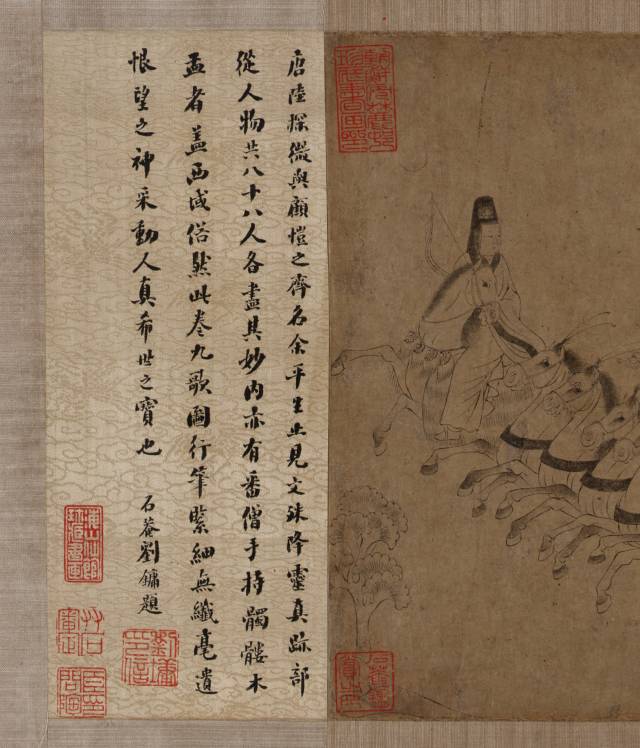 唐陸探微與顧愷之齊名余平生止見文殊降靈真跡部
從人物共八十八人各盡其妙內亦有番僧手持髑髏木
盂者盖西域俗然此卷九歌圖行筆緊細無纖毫遺
恨望之神采動人真希世之寶也
石菴劉鏞題